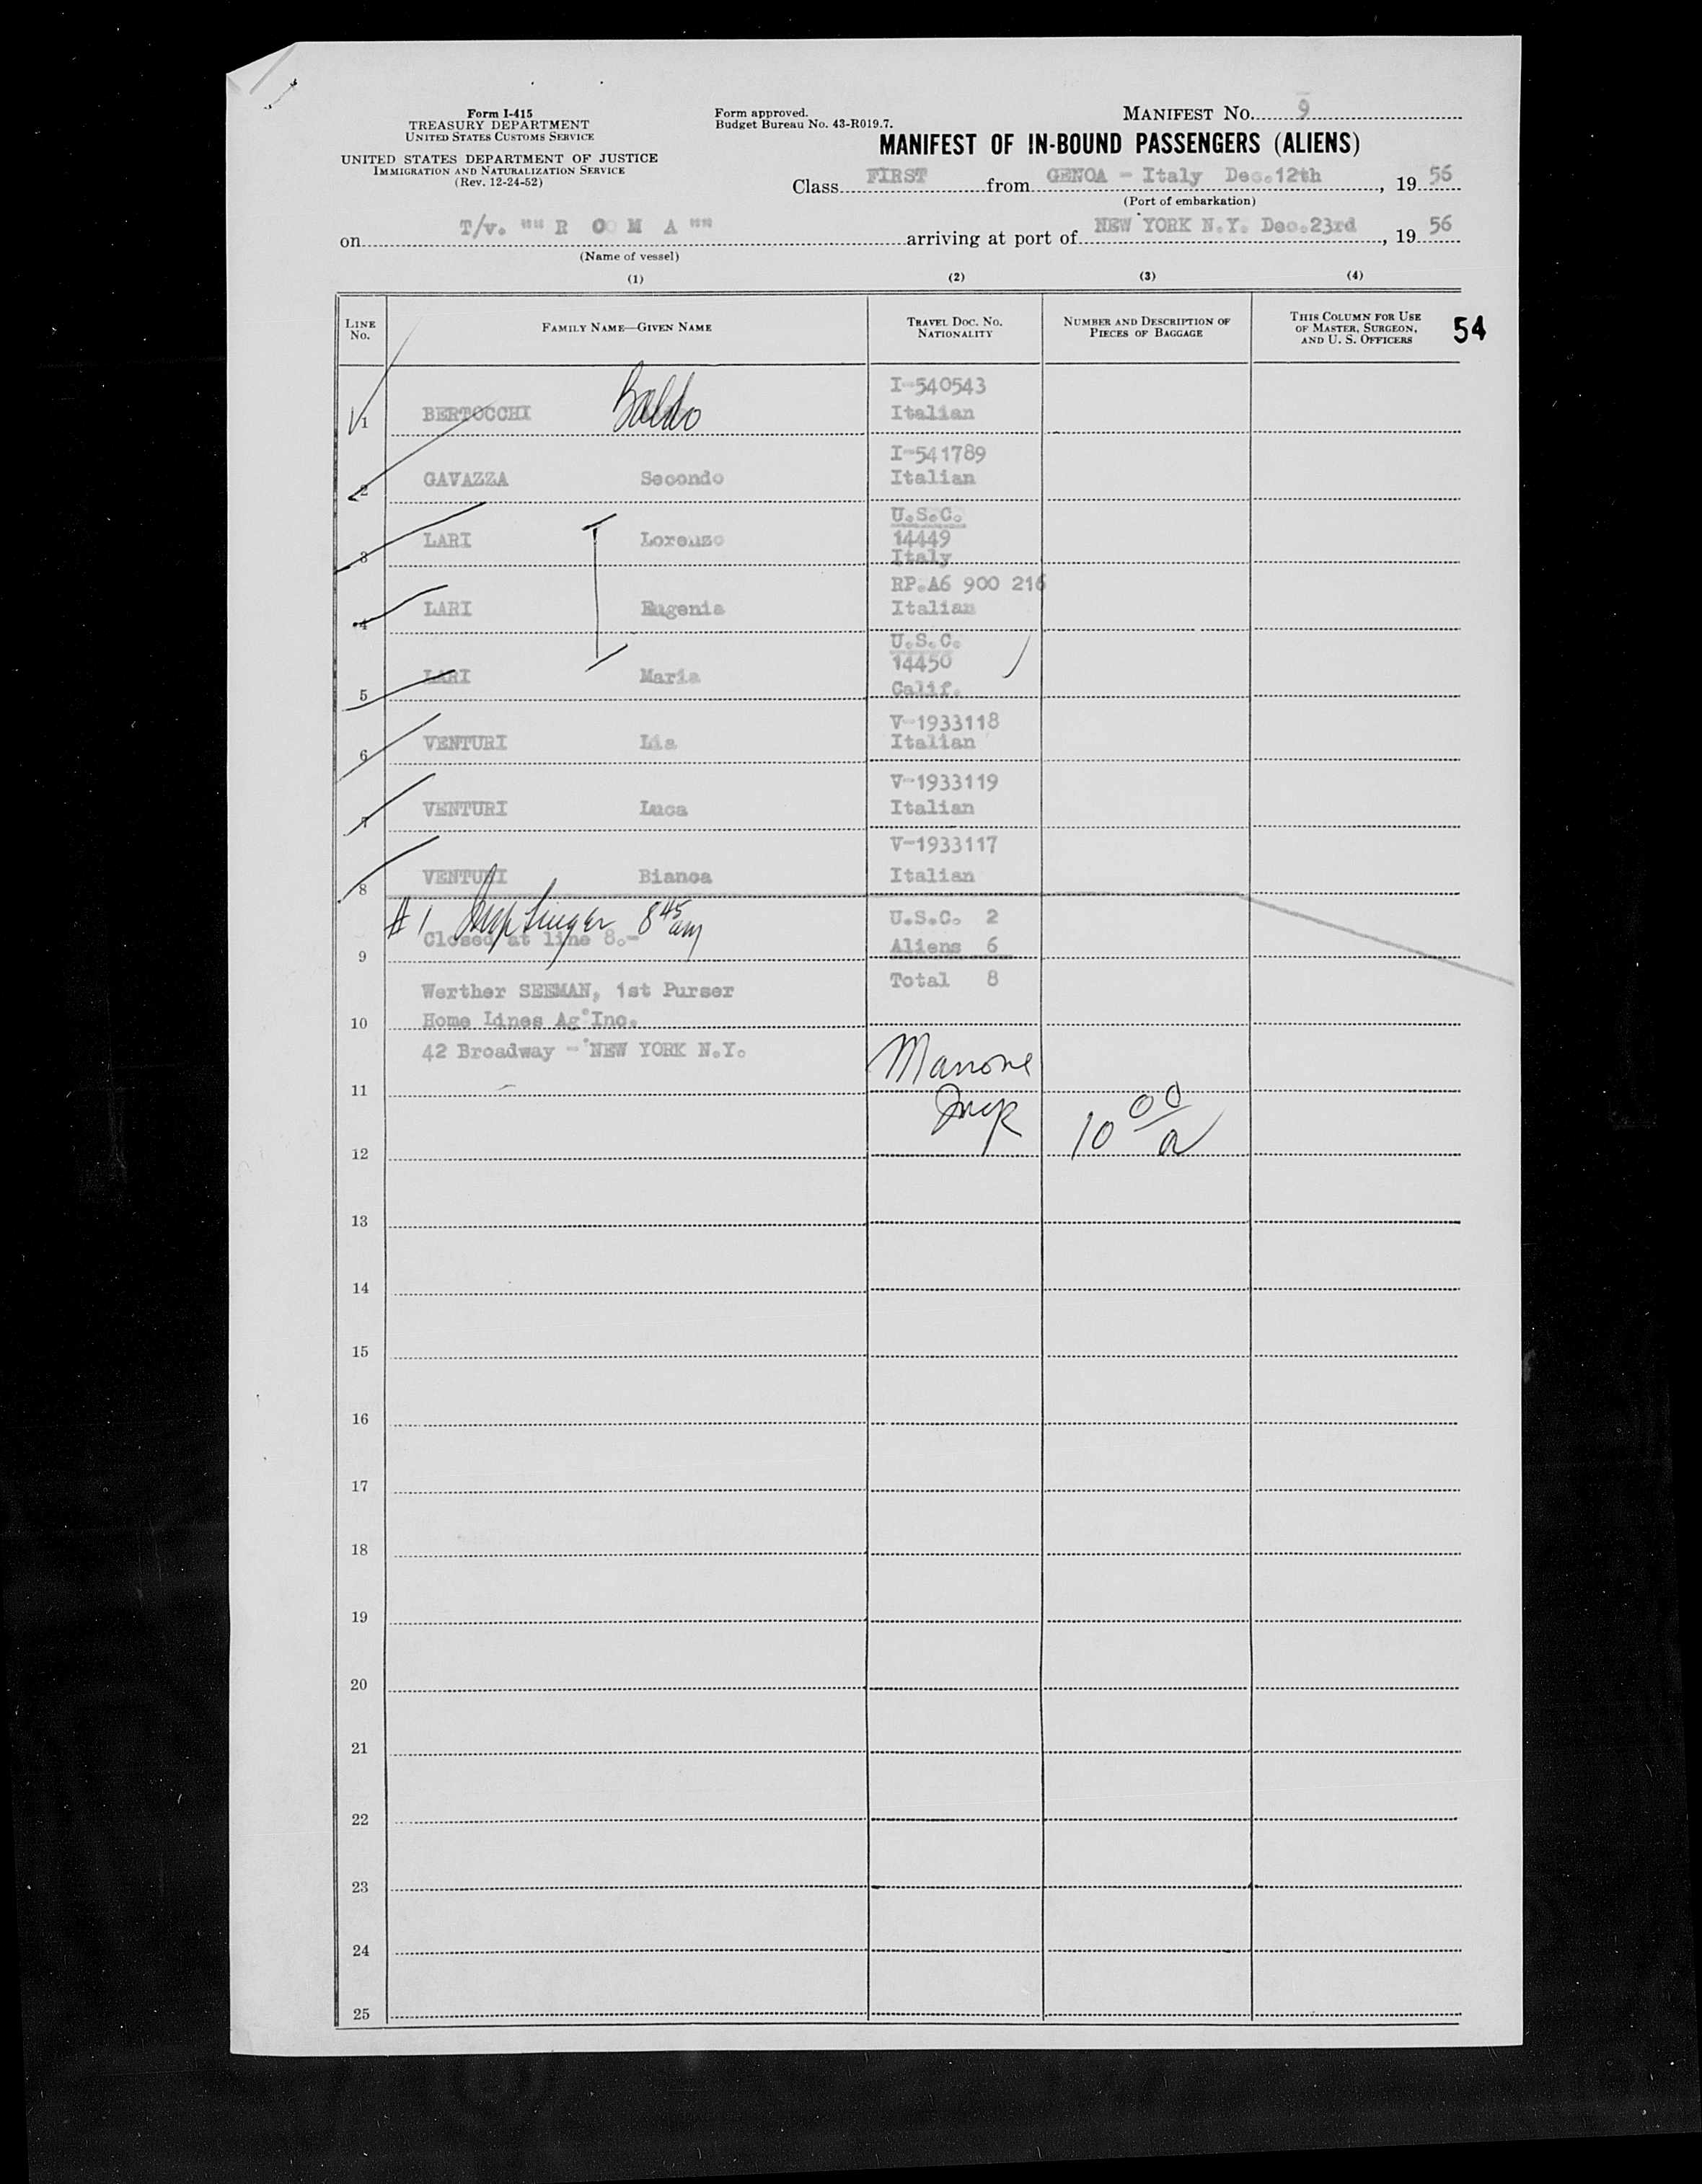 Form I-415
TREASURY DEPARTMENT
UNITED STATES CUSTOMS SERVICE
UNITED STATES DEPARTMENT OF JUSTICE
IMMIGRATION AND NATURALIZATION SERVICE
(Rev. 12-24-52)
Form approved.
Budget Bureau No. 43-R019.7.
MANIFEST No. 9
MANIFEST OF IN-BOUND PASSENGERS (ALIENS)
Class FIRST from GENOA - Italy Dec.12th, 19 56
(Port of embarkation)
on T/v. "" R O M A "" arriving at port of NEW YORK N.Y. Dec.23rd, 19 56
(Name of vessel)
(1) (2) (3) (4)
LINE No. FAMILY NAME—GIVEN NAME TRAVEL DOC. No. NATIONALITY NUMBER AND DESCRIPTION OF PIECES OF BAGGAGE THIS COLUMN FOR USE OF MASTER, SURGEON, AND U. S. OFFICERS
54
I-540543
1 BERTOCCHI Baldo Italian
I-541789
2 GAVAZZA Secondo Italian
U.S.C.
3 LARI Lorenzo 14449
Italy
RP.A6 900 216
4 LARI Eugenia Italian
U.S.C.
14450
5 LARI Maria
Calif.
V-1933118
6 VENTURI Lia Italian
V-1933119
7 VENTURI Luca Italian
V-1933117
8 VENTURI Bianca Italian
# 1 Insp Singer 8 45 am
U.S.C. 2
9 Closed at line 8.- Aliens 6
Total 8
Werther SEEMAN, 1st Purser
10 Home Lines Ag° Inc.
42 Broadway - NEW YORK N.Y.
Manone
11
Insp 10 00 a
12
13
14
15
16
17
18
19
20
21
22
23
24
25